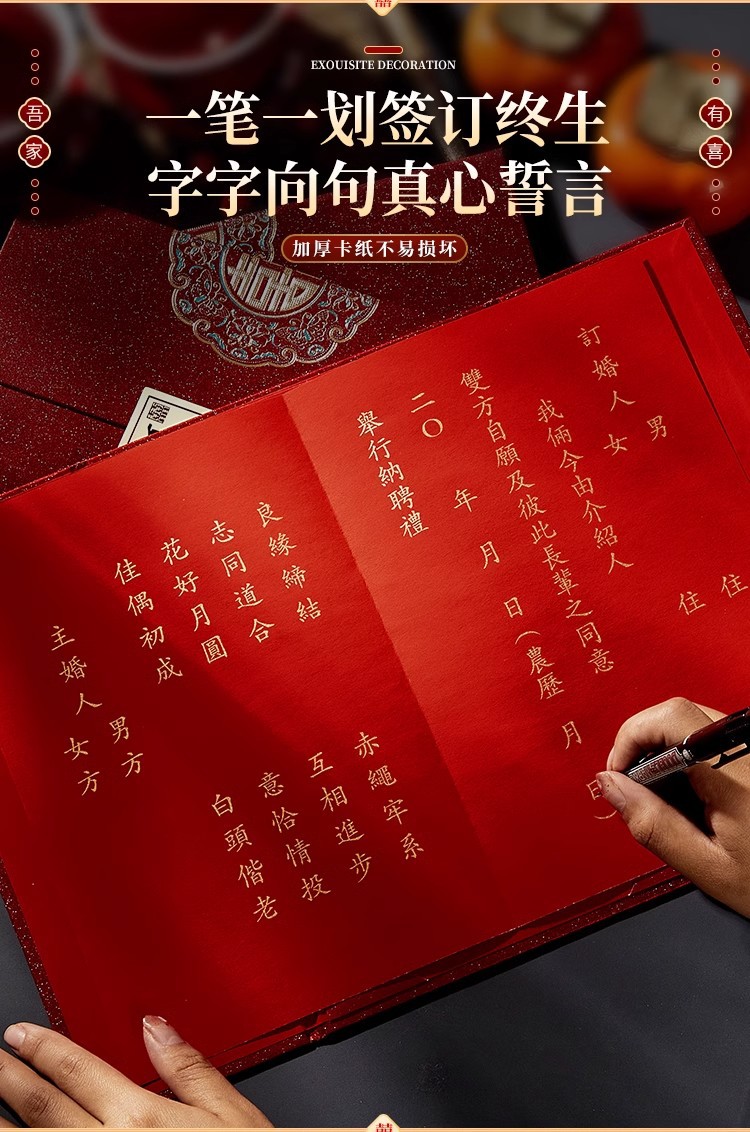 EXOUISITE DECORATION
一笔一划签订终生
字字向句真心誓言
加厚卡纸不易损坏
吾家
有喜
訂婚人
男
女
住
住
我倆今由介紹人
雙方自願及彼此長輩之同意
二〇 年 月 日(農歷 月 日)
舉行納聘禮
良緣締結 赤繩牢系
志同道合 互相進步
花好月圓 意恰情投
佳偶初成 白頭偕老
主婚人
男方
女方